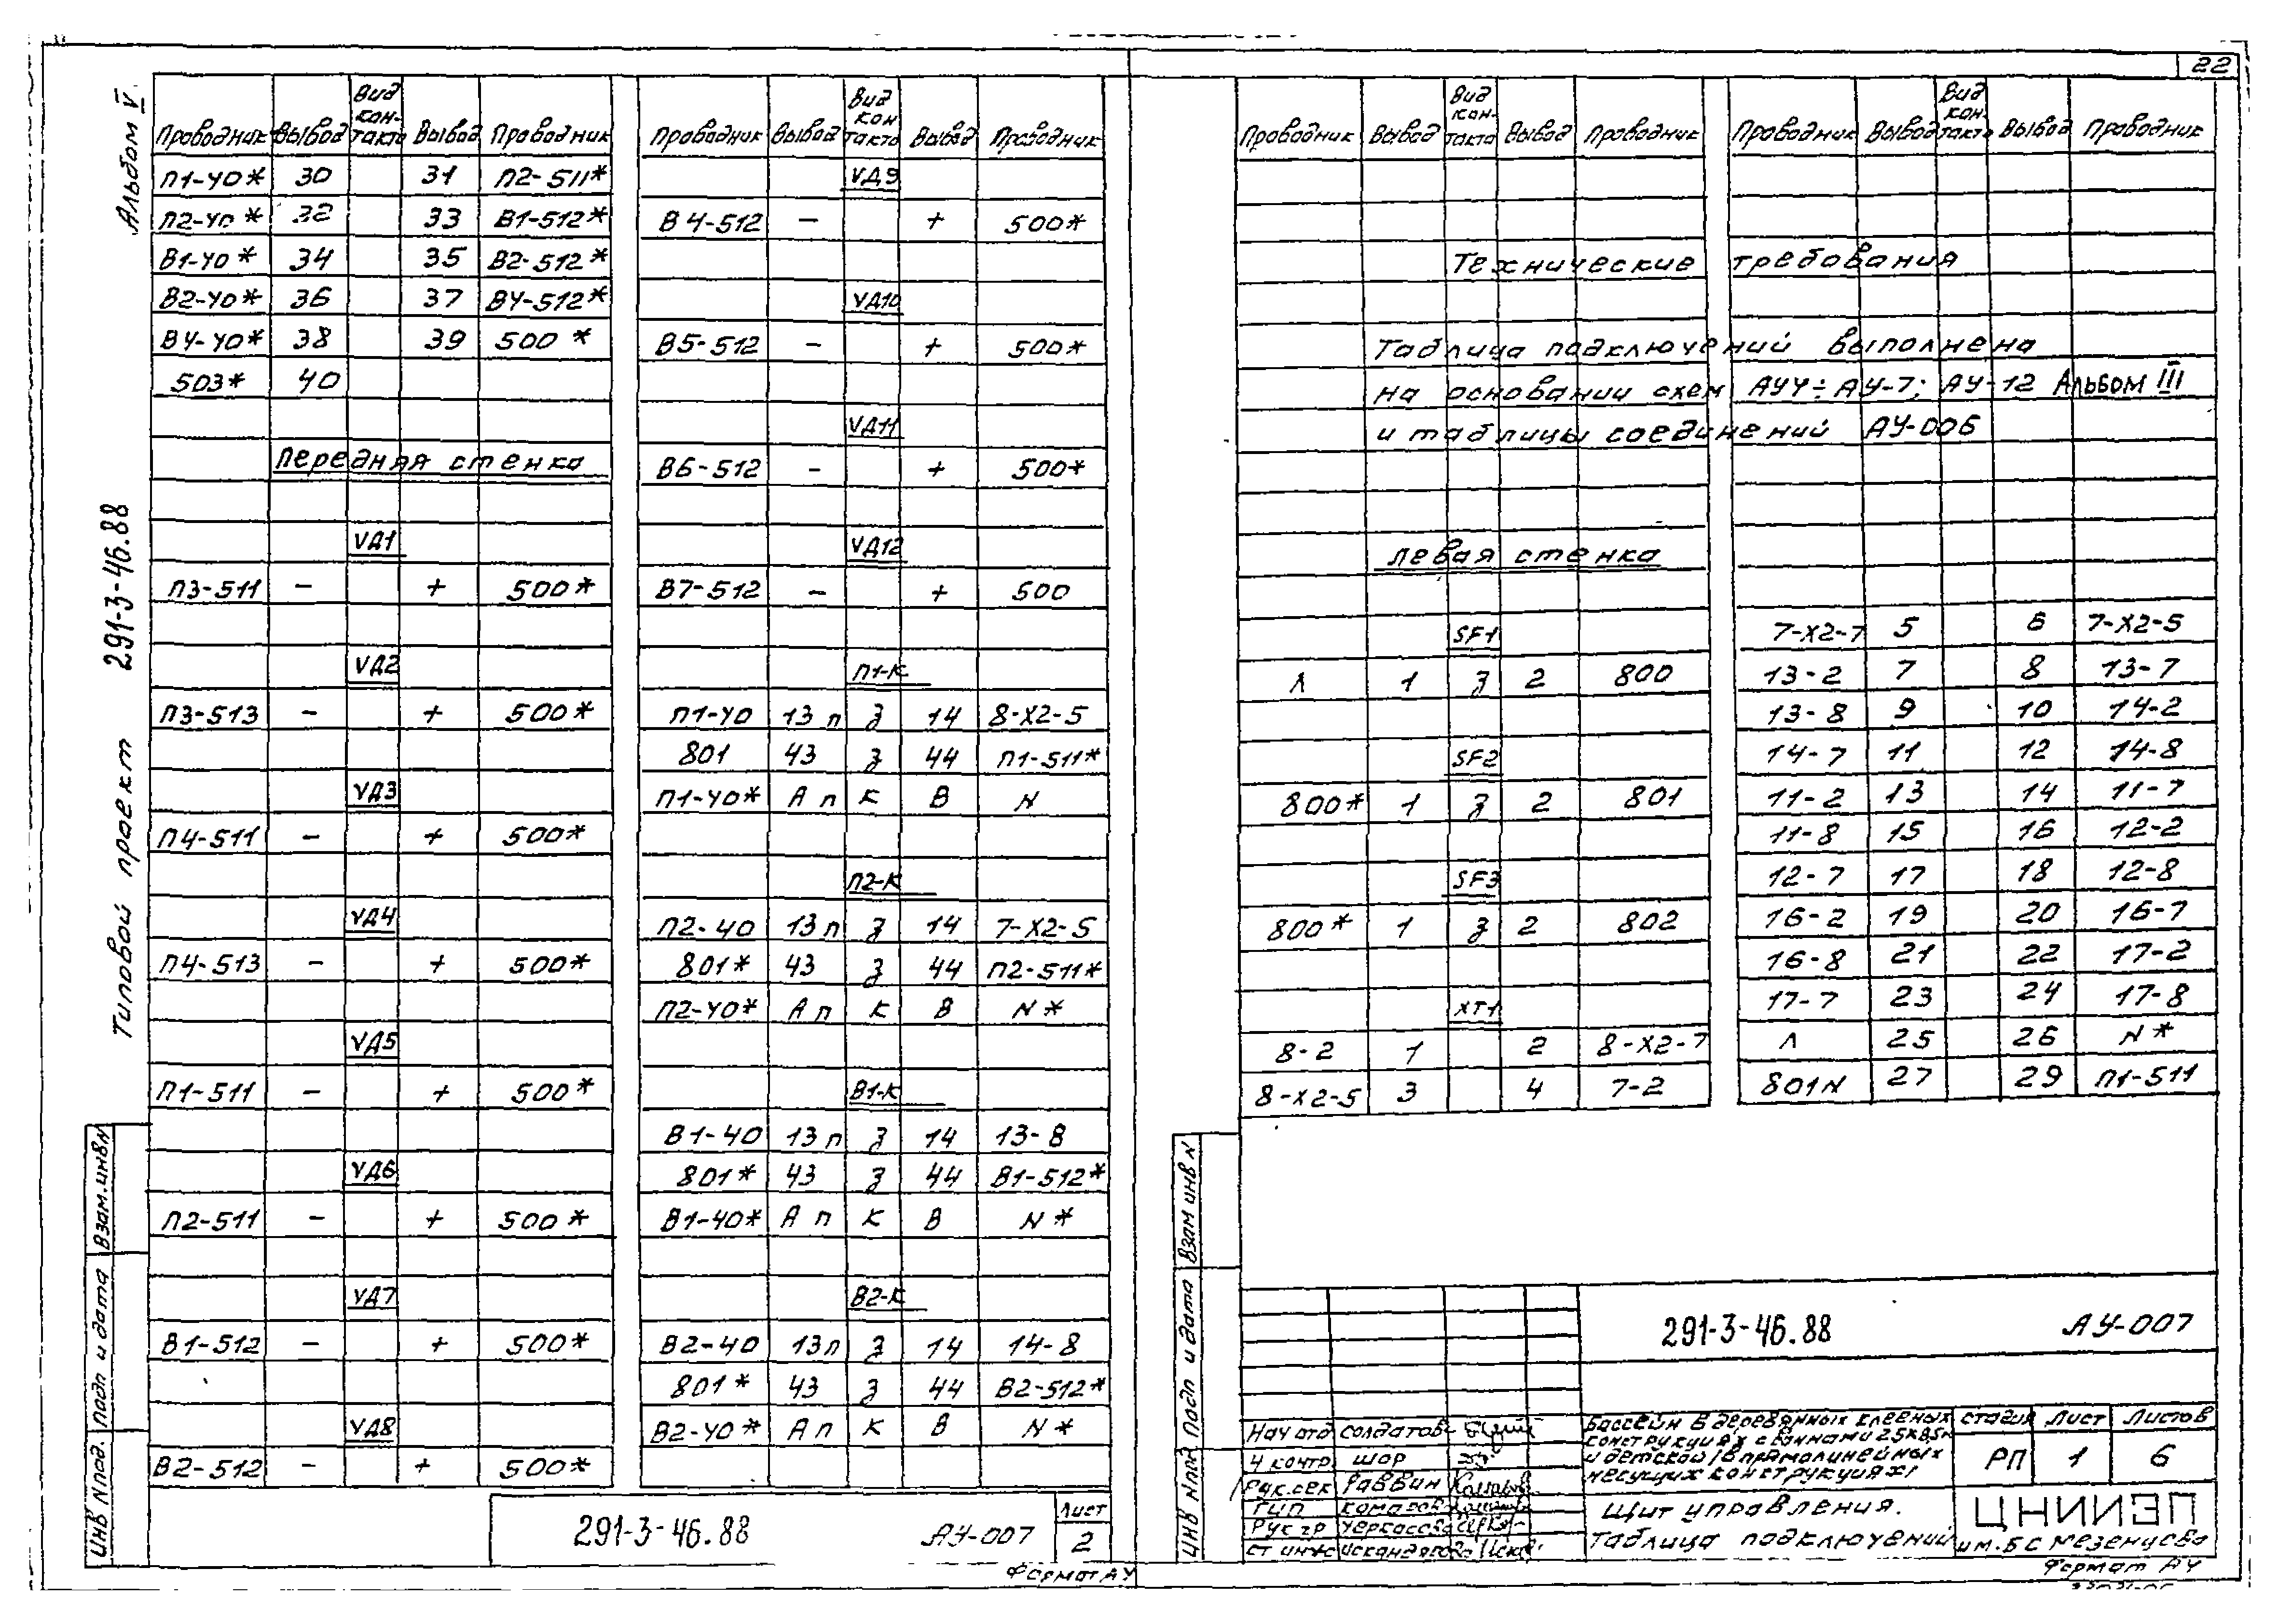 22
Альбом V
Типовой проект 291-3-46.88
Проводник Вывод Вид кон-такта Вывод Проводник
П1-40* 30 31 П2-511*
П2-40* 32 33 В1-512*
В1-40* 34 35 В2-512*
В2-40* 36 37 В4-512*
В4-40* 38 39 500*
503* 40
Передняя стенка
VД1
П3-511 - + 500*
VД2
П3-513 - + 500*
VД3
П4-511 - + 500*
VД4
П4-513 - + 500*
VД5
П1-511 - + 500*
VД6
П2-511 - + 500*
VД7
В1-512 - + 500*
VД8
В2-512 - + 500*
Проводник Вывод Вид кон такта Вывод Проводник
VД9
В4-512 - + 500*
VД10
В5-512 - + 500*
VД11
В6-512 - + 500*
VД12
В7-512 - + 500
П1-К
П1-40 13 п З 14 8-Х2-5
801 43 З 44 П1-511*
П1-40* А п К В N
П2-К
П2-40 13 п З 14 7-Х2-5
801* 43 З 44 П2-511*
П2-40* А п К В N*
В1-К
В1-40 13 п З 14 13-8
801* 43 З 44 В1-512*
В1-40* А п К В N*
В2-К
В2-40 13 п З 14 14-8
801* 43 З 44 В2-512*
В2-40* А п К В N*
Взам.инв N
Подп и дата
Инв N подл.
291-3-46.88 АУ-007 Лист 2
Формат А4
Проводник Вывод Вид кон-такта Вывод Проводник
Проводник Вывод Вид кон-такта Вывод Проводник
Технические требования
Таблица подключений выполнена
на основании схем АУ4÷АУ-7; АУ-12 Альбом III
и таблицы соединений АУ-006
Левая стенка
SF1
Л 1 З 2 800
SF2
800* 1 З 2 801
SF3
800* 1 З 2 802
ХТ1
8-2 1 2 8-Х2-7
8-Х2-5 3 4 7-2
7-Х2-7 5 6 7-Х2-5
13-2 7 8 13-7
13-8 9 10 14-2
14-7 11 12 14-8
11-2 13 14 11-7
11-8 15 16 12-2
12-7 17 18 12-8
16-2 19 20 16-7
16-8 21 22 17-2
17-7 23 24 17-8
Л 25 26 N*
801N 27 29 П1-511
Взам инв N
Подп и дата
Инв N подл
291-3-46.88 АУ-007
Нач отд Солдатов
Н контр Шор
Рук.сек Раввин
ГИП Комаров
Рук гр Черкасова
Ст инж
Бассейн в деревянных клееных
конструкциях с ваннами 25х8,5м
и детской /в прямолинейных
несущих конструкциях/
Стадия Лист Листов
РП 1 6
Щит управления.
Таблица подключений
ЦНИИЭП
им. Б С Мезенцева
Формат А4